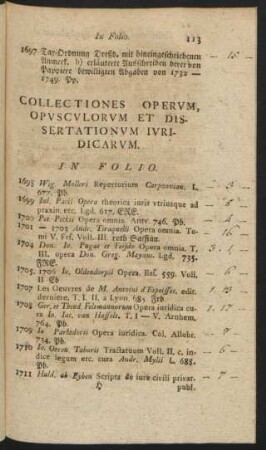 In Folio. 113
1697 Tax-Ordnung Dreßd. mit hineingeschriebenen
Anmerk. b) erläuterte Ausschreiben derer von
Pappiere bewilligten Abgaben von 1732 —
1749. Pp. - 15 -
COLLECTIONES OPERVM,
OPVSCVLORVM ET DIS-
SERTATIONVM IVRI-
DICARVM.
IN FOLIO.
1698 Wig. Molleri Repertorium Carpzouian. L.
677. Pb. - 3 -
1699 Iul. Pacii Opera theorica iuris vtriusque ad
praxin etc. Lgd. 617. - 5 -
1700 Pu. Peckii Opera omnia. Antv. 746. Pb. - 4 -
1701 — 1703 Andr. Tiraquelli Opera omnia. To-
mi V. Frf. Voll. III. roth
1704 Don. Io. Puga et Feijóo Opera omnia. T.
III. opera Don. Greg. Mayans. Lgd. 735.
1705. 1706 Io. Oldendorpii Opera. Bas. 559. Voll.
II
1707 Les Oeuvres de M. Antoini d'Espeisses. edit.
derniere. T. I. II. a Lyon. 685. Frb
1708 Ger. et Theod. Felemannorum Opera iuridica cu-
ra Io. Iac. van Hasselt. T. I — V. Arnhem.
764. Pb.
1709 Io Parladorii Opera iuridica. Col. Allobr.
734. Pb.
1710 Io. Octau. Taboris Tractatuum Voll. II. c. in-
dice legum etc. cura Andr. Mylii L. 688.
Pb. - 6 -
1711 Huld. ab Eyben Scripta de iure civili privat. - 7 -
H publ.